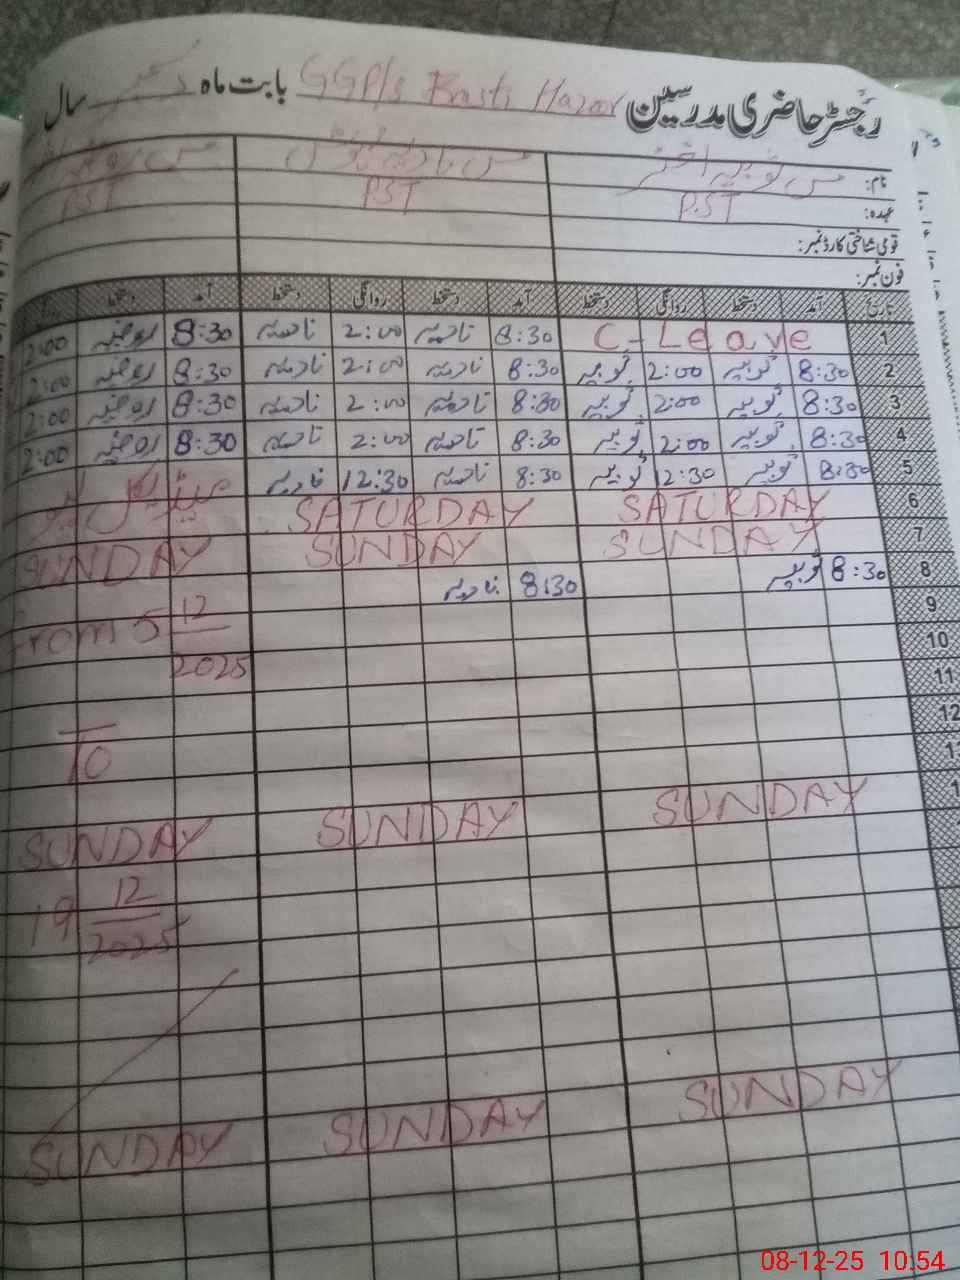 رجسٹر حاضری مدرسین GGP/s Basti Hazoor بابت ماہ دسمبر سال
نام: مس ثوبیہ اختر مس نادیہ مس
عہدہ: P.ST PST PST
قومی شناختی کارڈ نمبر:
فون نمبر:
تاریخ آمد دستخط روانگی دستخط آمد دستخط روانگی دستخط آمد دستخط
1 C-Leave 8:30 نادیہ 2:00 نادیہ 8:30 روضیہ 2:00
2 8:30 ثوبیہ 2:00 ثوبیہ 8:30 نادیہ 2:00 نادیہ 8:30 روضیہ 2:00
3 8:30 ثوبیہ 2:00 ثوبیہ 8:30 نادیہ 2:00 نادیہ 8:30 روضیہ 2:00
4 8:30 ثوبیہ 2:00 ثوبیہ 8:30 نادیہ 2:00 نادیہ 8:30 روضیہ 2:00
5 8:30 ثوبیہ 12:30 ثوبیہ 8:30 نادیہ 12:30 نادیہ میڈیکل لیو
6 SATURDAY SATURDAY
7 SUNDAY SUNDAY SUNDAY
8 8:30 ثوبیہ 8:30 نادیہ
9 From 5 12
10 2025
11
12 To
SUNDAY SUNDAY SUNDAY
19 12
2025
SUNDAY SUNDAY SUNDAY
08-12-25 10:54